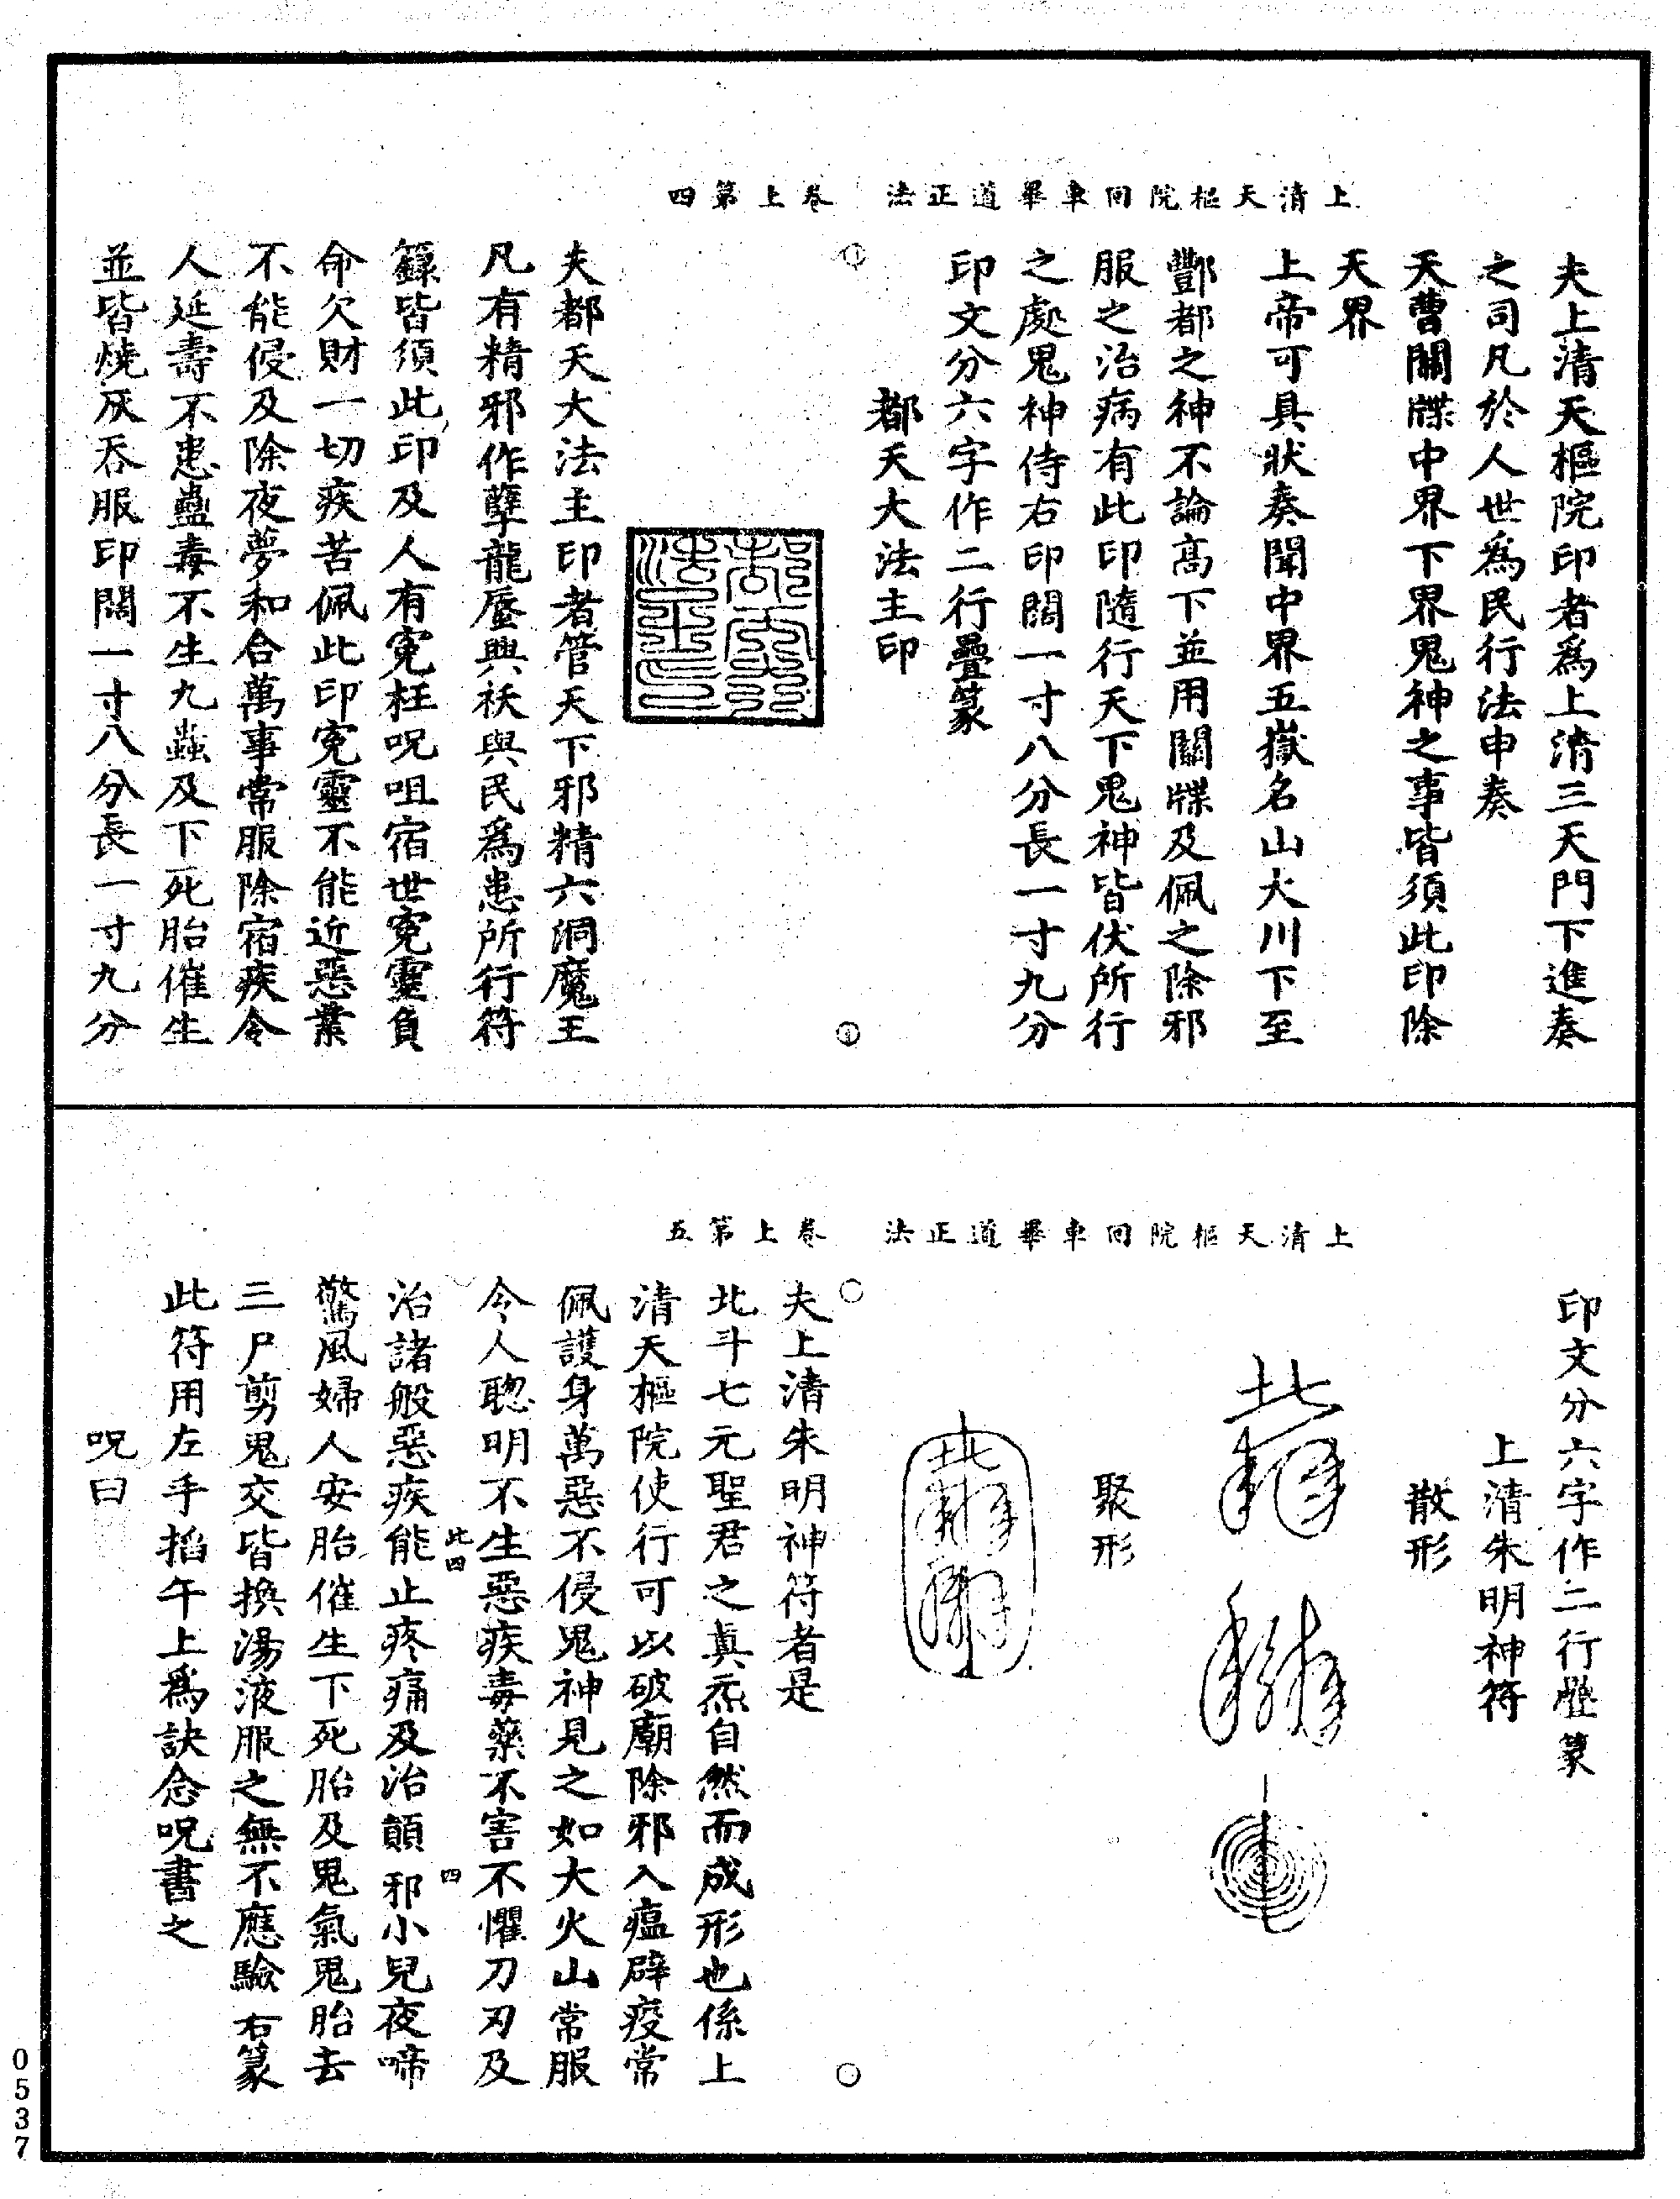 夫上清天樞院印者爲上清三天門下進奏
之司凡於人世爲民行法申奏
天曹關牒中界下界鬼神之事皆須此印除
天界
上帝可具狀奏聞中界五嶽名山大川下至
酆都之神不論高下並用關牒及佩之除邪
服之治病有此印隨行天下鬼神皆伏所行
之處鬼神侍右印闊一寸八分長一寸九分
印文分六字作二行疊篆
都天大法主印
上清天樞院回車畢道正法 卷上第四
夫都天大法主印者管天下邪精六洞魔王
凡有精邪作孽龍蜃興袄與民爲患所行符
籙皆須此印及人有寃枉呪咀宿世寃靈負
命欠財一切疾苦佩此印寃靈不能近惡業
不能侵及除夜夢和合萬事常服除宿疾令
人延壽不患蠱毒不生九蟲及下死胎催生
並皆燒灰吞服印闊一寸八分長一寸九分
印文分六字作二行疊篆
上清朱明神符
散形
聚形
上清天樞院回車畢道正法 卷上第五
夫上清朱明神符者是
北斗七元聖君之眞炁自然而成形也係上
清天樞院使行可以破廟除邪入瘟辟疫常
佩護身萬惡不侵鬼神見之如大火山常服
令人聰明不生惡疾毒藥不害不懼刀刃及
此四 四
治諸般惡疾能止疼痛及治顛邪小兒夜啼
驚風婦人安胎催生下死胎及鬼氣鬼胎去
三尸剪鬼交皆換湯液服之無不應驗右篆
此符用左手掐午上爲訣念呪書之
呪曰
0537